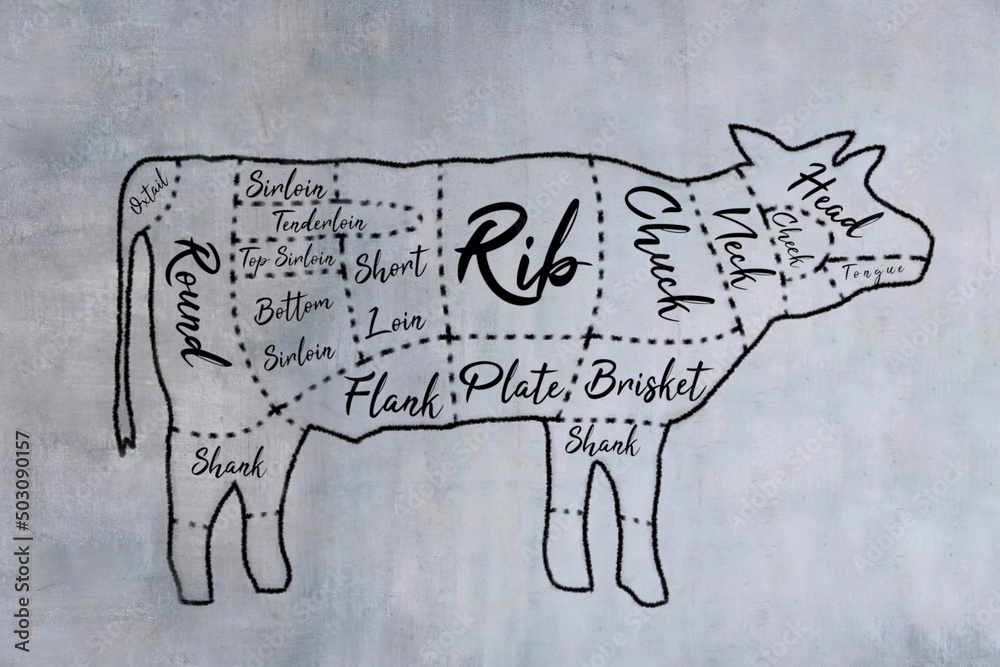 Oxtail
Round
Sirloin
Tenderloin
Top Sirloin
Bottom
Sirloin
Short
Loin
Rib
Chuck
Neck
Cheek
Head
Tongue
Flank
Plate
Brisket
Shank
Shank
Adobe Stock | #503090157
Adobe Stock